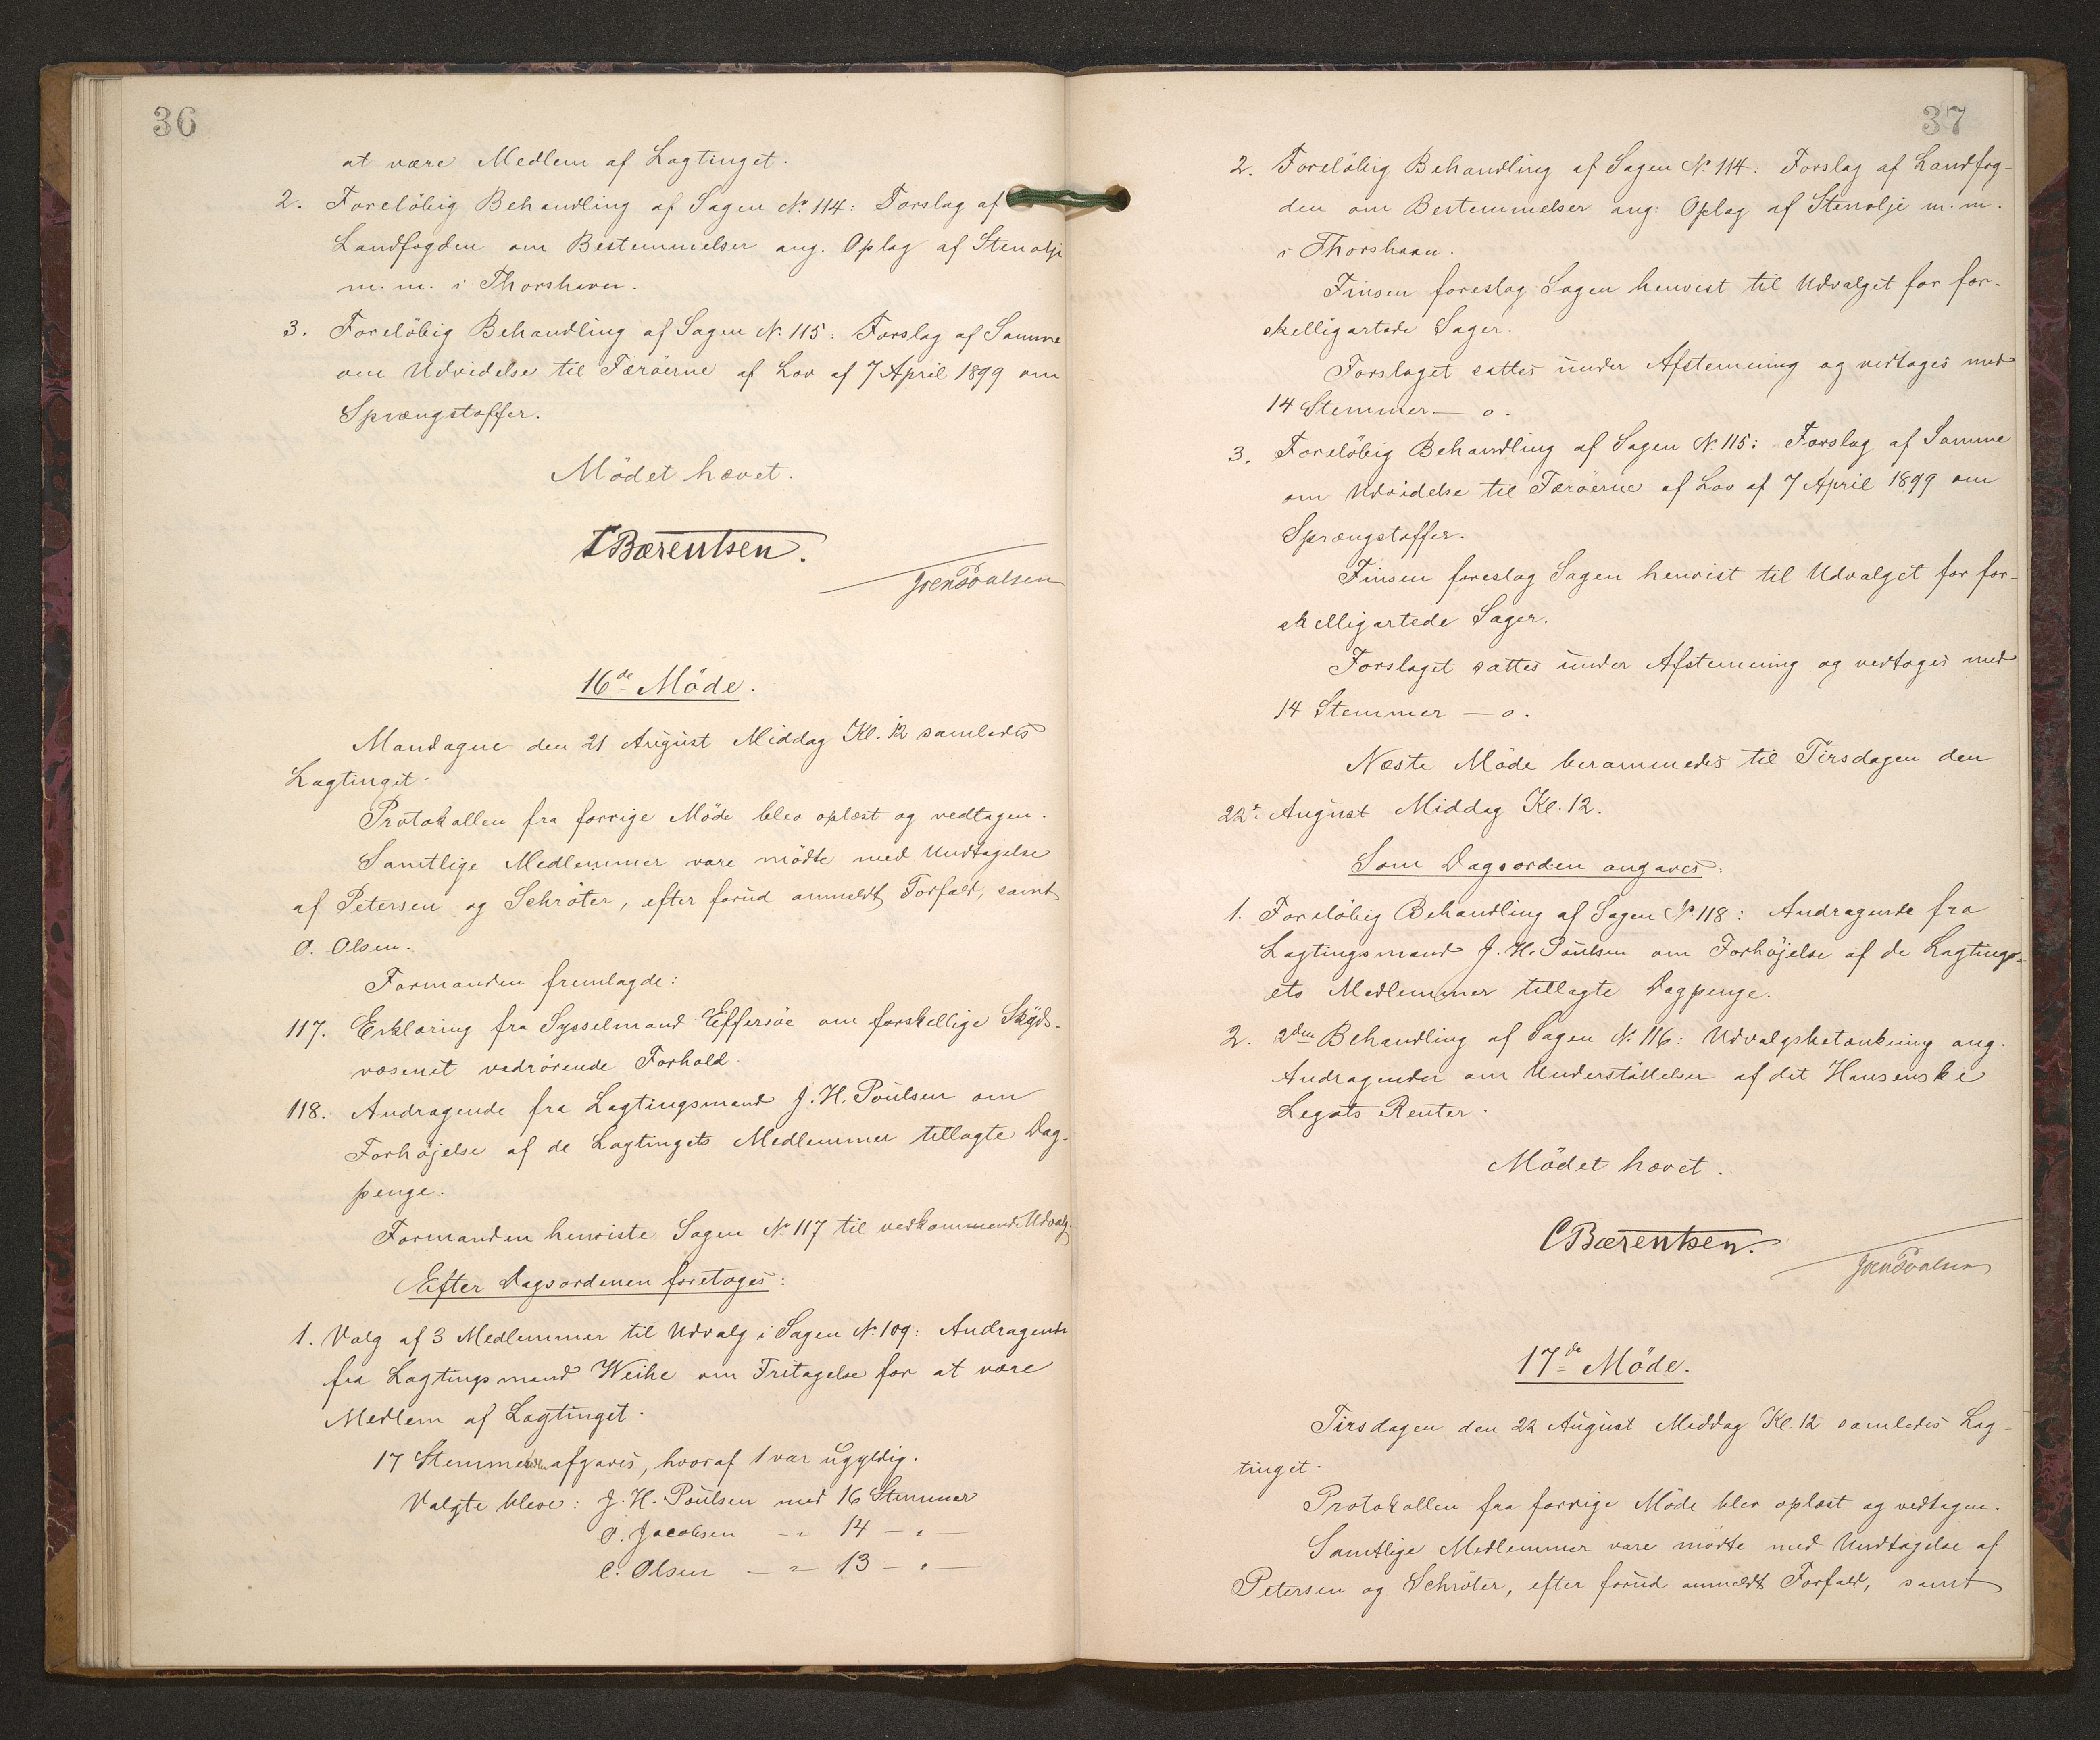 36
at være Medlem af Lagtinget.
2. Foreløbig Behandling af Sagen No. 114: Forslag af
Landfogden om Bestemmelser ang. Oplag af Stenolje
m.m. i Thorshavn.
3. Foreløbig Behandling af Sagen No. 115: Forslag af Samme
om Udvidelse til Færøerne af Lov af 7 April 1899 om
Sprængstoffer.
Mödet hævet.
C Bærentsen.
Joen Poulsen
16de Möde.
Mandagen den 21 August Middag Kl. 12 samledes
Lagtinget.
Protokollen fra forrige Möde blev oplæst og vedtagen.
Samtlige Medlemmer vare mödte med Undtagelse
af Petersen og Schröter, efter forud anmeldt Forfald, samt
O. Olsen.
Formanden fremlagde:
117. Erklæring fra Sysselmand Effersøe om forskellige Skyds-
væsenet vedrörende Forhold.
118. Andragende fra Lagtingsmand J. H. Poulsen om
Forhöjelse af de Lagtingets Medlemmer tillagte Dag-
penge.
Formanden henviste Sagen No. 117 til vedkommende Udvalg
Efter Dagsordenen foretoges:
1. Valg af 3 Medlemmer til Udvalg i Sagen No. 109: Andragende
fra Lagtingsmand Weihe om Fritagelse for at være
Medlem af Lagtinget.
17 Stemmesedler afgaves, hvoraf 1 var ugyldig.
Valgte bleve: J. H. Poulsen med 16 Stemmer
O. Jacobsen - " 14 - " -
C. Olsen - " 13 - " -
37
2. Foreløbig Behandling af Sagen No. 114: Forslag af Landfog-
den om Bestemmelser ang: Oplag af Stenolje m.m.
i Thorshavn.
Finsen foreslog Sagen henvist til Udvalget for for-
skelligartede Sager.
Forslaget sattes under Afstemning og vedtoges med
14 Stemmer - 0.
3. Foreløbig Behandling af Sagen No. 115: Forslag af Samme
om Udvidelse til Færøerne af Lov af 7 April 1899 om
Sprængstoffer.
Finsen foreslog Sagen henvist til Udvalget for for-
skelligartede Sager.
Forslaget sattes under Afstemning og vedtoges med
14 Stemmer - 0.
Næste Möde berammedes til Tirsdagen den
22de August Middag Kl. 12.
Som Dagsorden angaves:
1. Foreløbig Behandling af Sagen No 118: Andragende fra
Lagtingsmand J. H. Poulsen om Forhöjelse af de Lagting-
ets Medlemmer tillagte Dagpenge.
2. 2den Behandling af Sagen No. 116: Udvalgsbetænkning ang.
Andragender om Understöttelser af det Hansenske
Legats Renter.
Mödet hævet.
C Bærentsen.
Joen Poulsen
17de Möde.
Tirsdagen den 22 August Middag Kl. 12 samledes Lag-
tinget.
Protokollen fra forrige Möde blev oplæst og vedtagen.
Samtlige Medlemmer vare mödte med Undtagelse af
Petersen og Schröter, efter forud anmeldt Forfald, samt